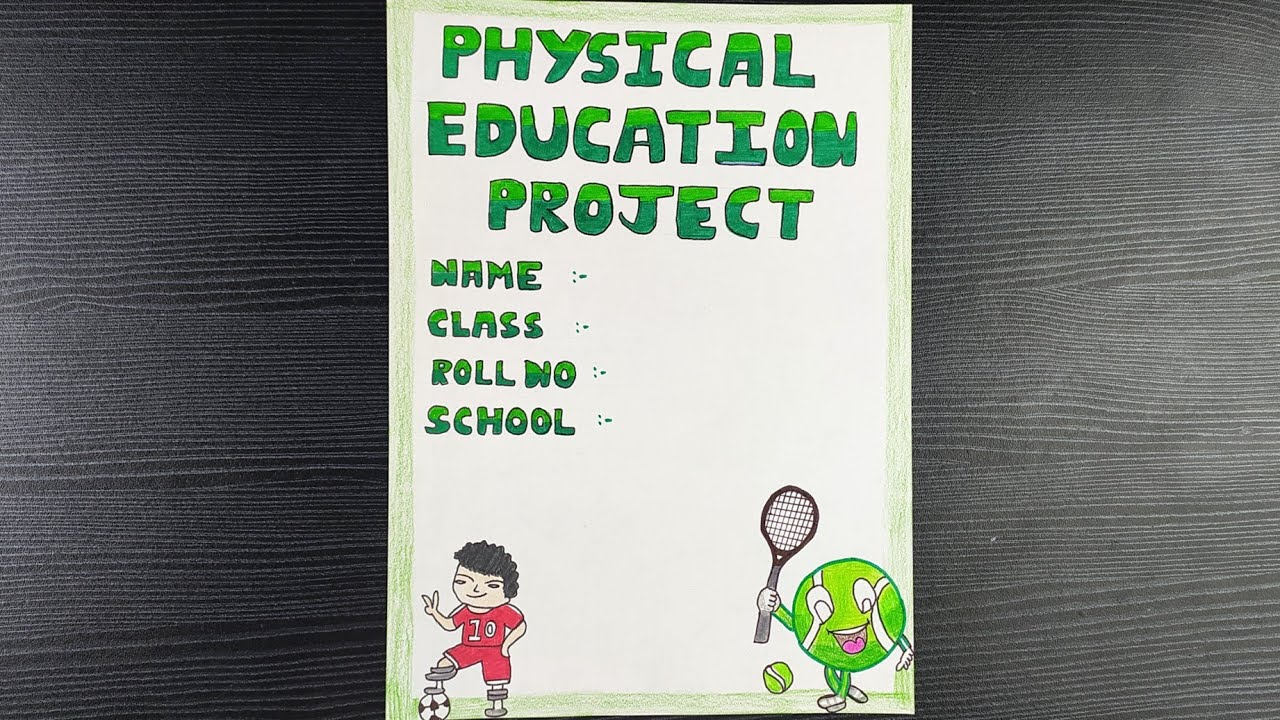 PHYSICAL
EDUCATION
PROJECT
NAME :-
CLASS :-
ROLL NO :-
SCHOOL :-
10